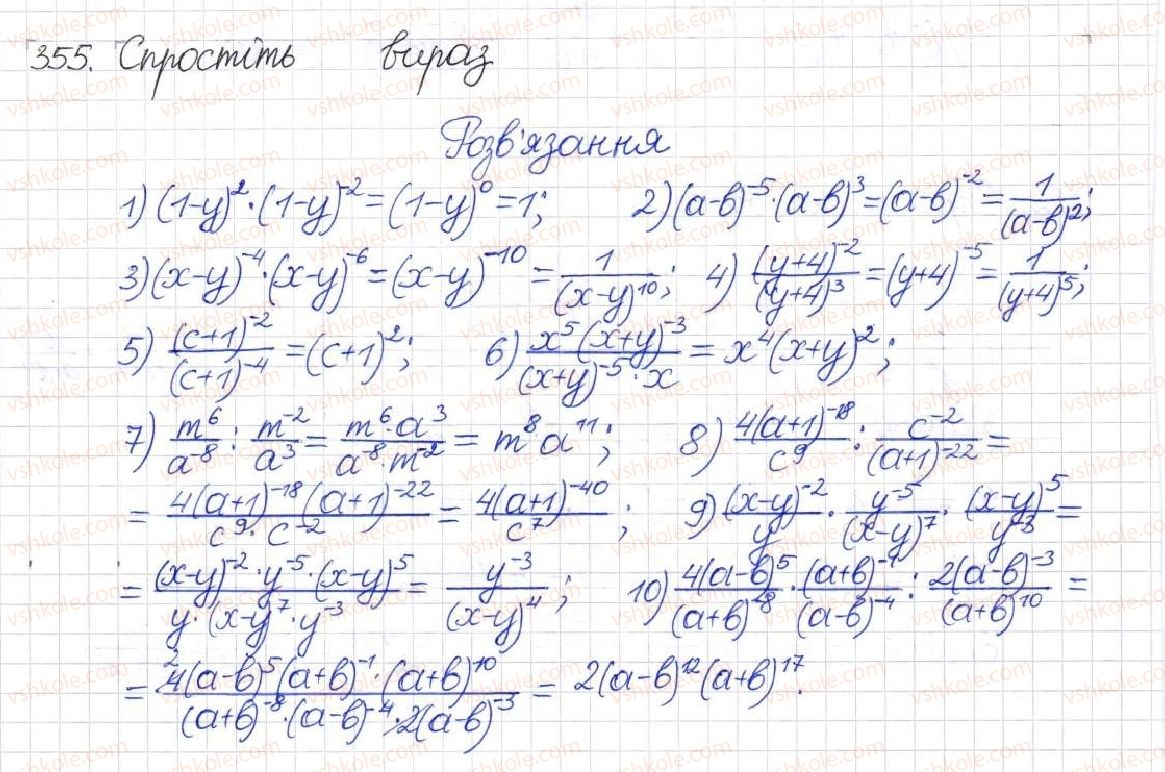 355. Спростіть вираз
Розв'язання
1) (1-y)²·(1-y)⁻²=(1-y)⁰=1; 2) (a-b)⁻⁵·(a-b)³=(a-b)⁻²=1/(a-b)²;
3) (x-y)⁻⁴·(x-y)⁻⁶=(x-y)⁻¹⁰=1/(x-y)¹⁰; 4) (y+4)⁻²/(y+4)³=(y+4)⁻⁵=1/(y+4)⁵;
5) (c+1)⁻²/(c+1)⁻⁴=(c+1)²; 6) x⁵(x+y)⁻³/(x+y)⁻⁵·x=x⁴(x+y)²;
7) m⁶/a⁻⁸:m⁻²/a³=m⁶·a³/a⁻⁸·m⁻²=m⁸a¹¹; 8) 4(a+1)⁻¹⁸/c⁹:c⁻²/(a+1)⁻²²=
=4(a+1)⁻¹⁸(a+1)⁻²²/c⁹·c⁻²=4(a+1)⁻⁴⁰/c⁷; 9) (x-y)⁻²/y·y⁻⁵/(x-y)⁷·(x-y)⁵/y⁻³=
=(x-y)⁻²·y⁻⁵·(x-y)⁵/y·(x-y)⁷·y⁻³=y⁻³/(x-y)⁴; 10) 4(a-b)⁵/(a+b)⁻⁸·(a+b)⁻¹/(a-b)⁻⁴:2(a-b)⁻³/(a+b)¹⁰=
=4(a-b)⁵(a+b)⁻¹·(a+b)¹⁰/(a+b)⁻⁸·(a-b)⁻⁴·2(a-b)⁻³=2(a-b)¹²(a+b)¹⁷.